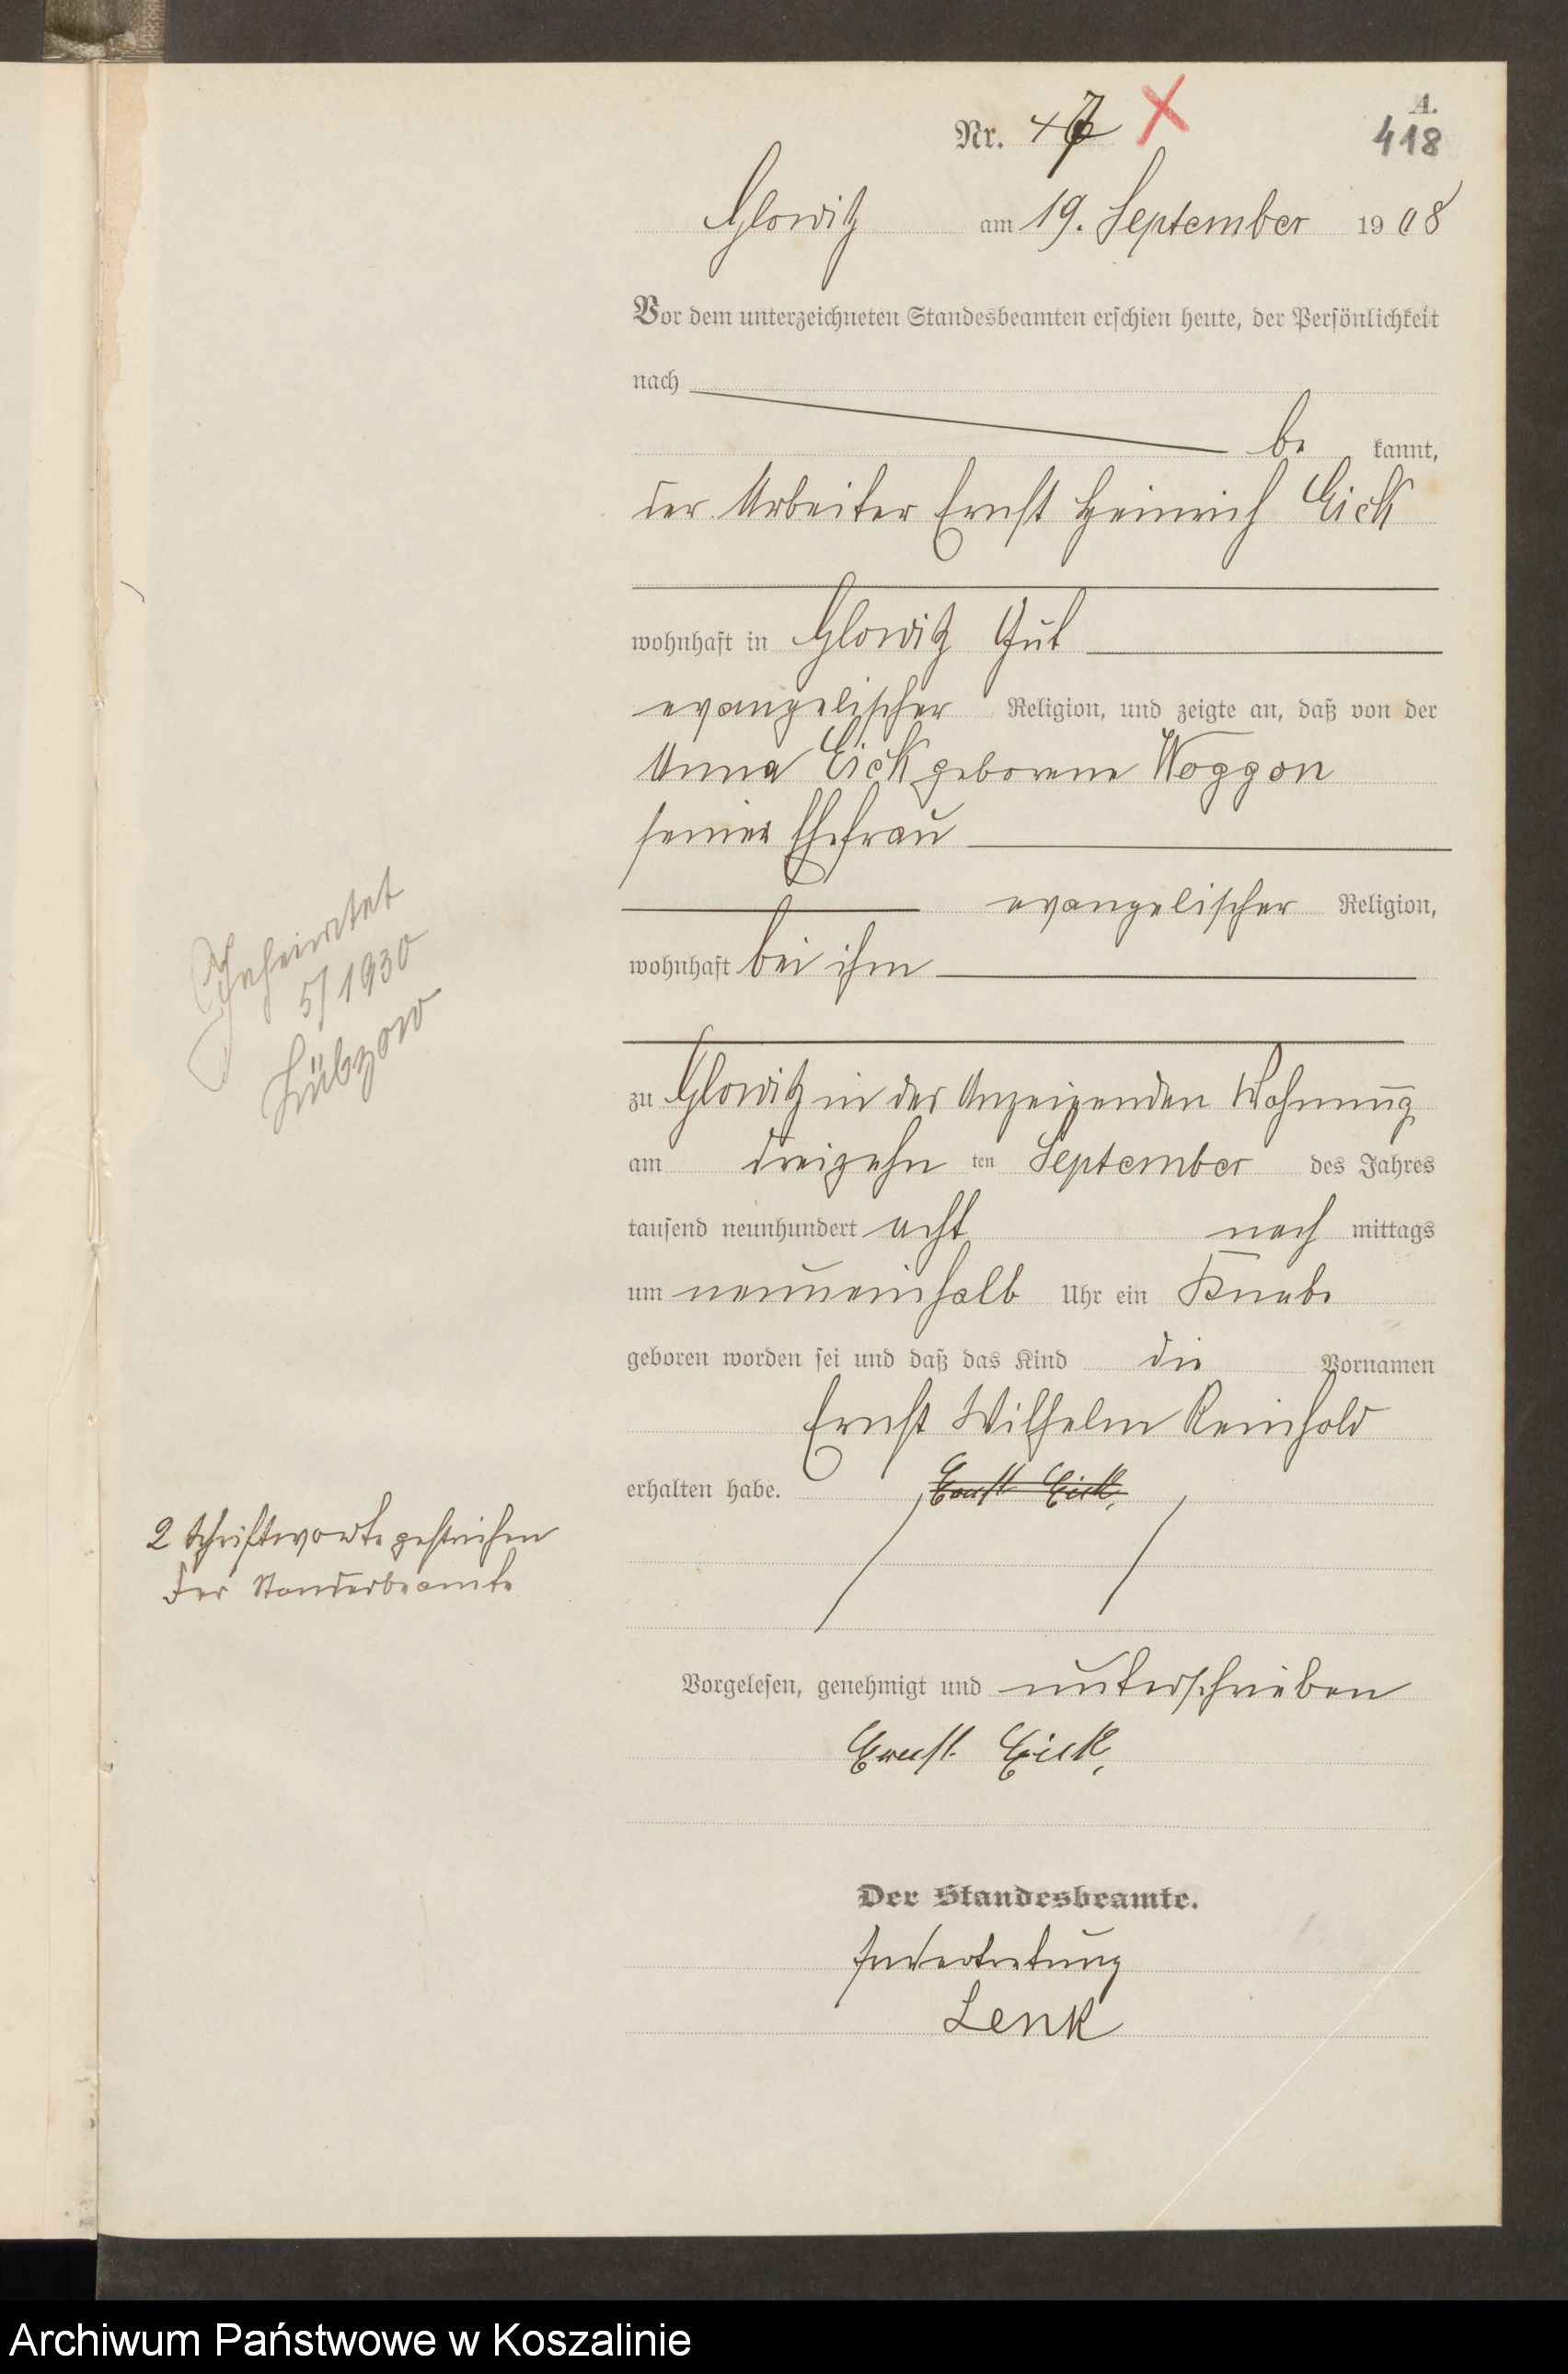 A.
Nr. 47 X
418
Glowitz am 19. September 1908
Vor dem unterzeichneten Standesbeamten erschien heute, der Persönlichkeit
nach
be kannt,
der Arbeiter Ernst Heinrich Eick
wohnhaft in Glowitz Gut
evangelischer Religion, und zeigte an, daß von der
Anna Eick geborene Woggon
seiner Ehefrau
evangelischer Religion,
wohnhaft bei ihm
Geheiratet
5/1930
Lübzow
zu Glowitz in des Anzeigenden Wohnung
am dreizehn ten September des Jahres
tausend neunhundert acht nach mittags
um neuneinhalb Uhr ein Knabe
geboren worden sei und daß das Kind die Vornamen
Ernst Wilhelm Reinhold
erhalten habe. Ernst Eick,
2 Schriftworte gestrichen
Der Standesbeamte
Vorgelesen, genehmigt und unterschrieben
Ernst Eick,
Der Standesbeamte.
In Vertretung
Lenk
Archiwum Państwowe w Koszalinie